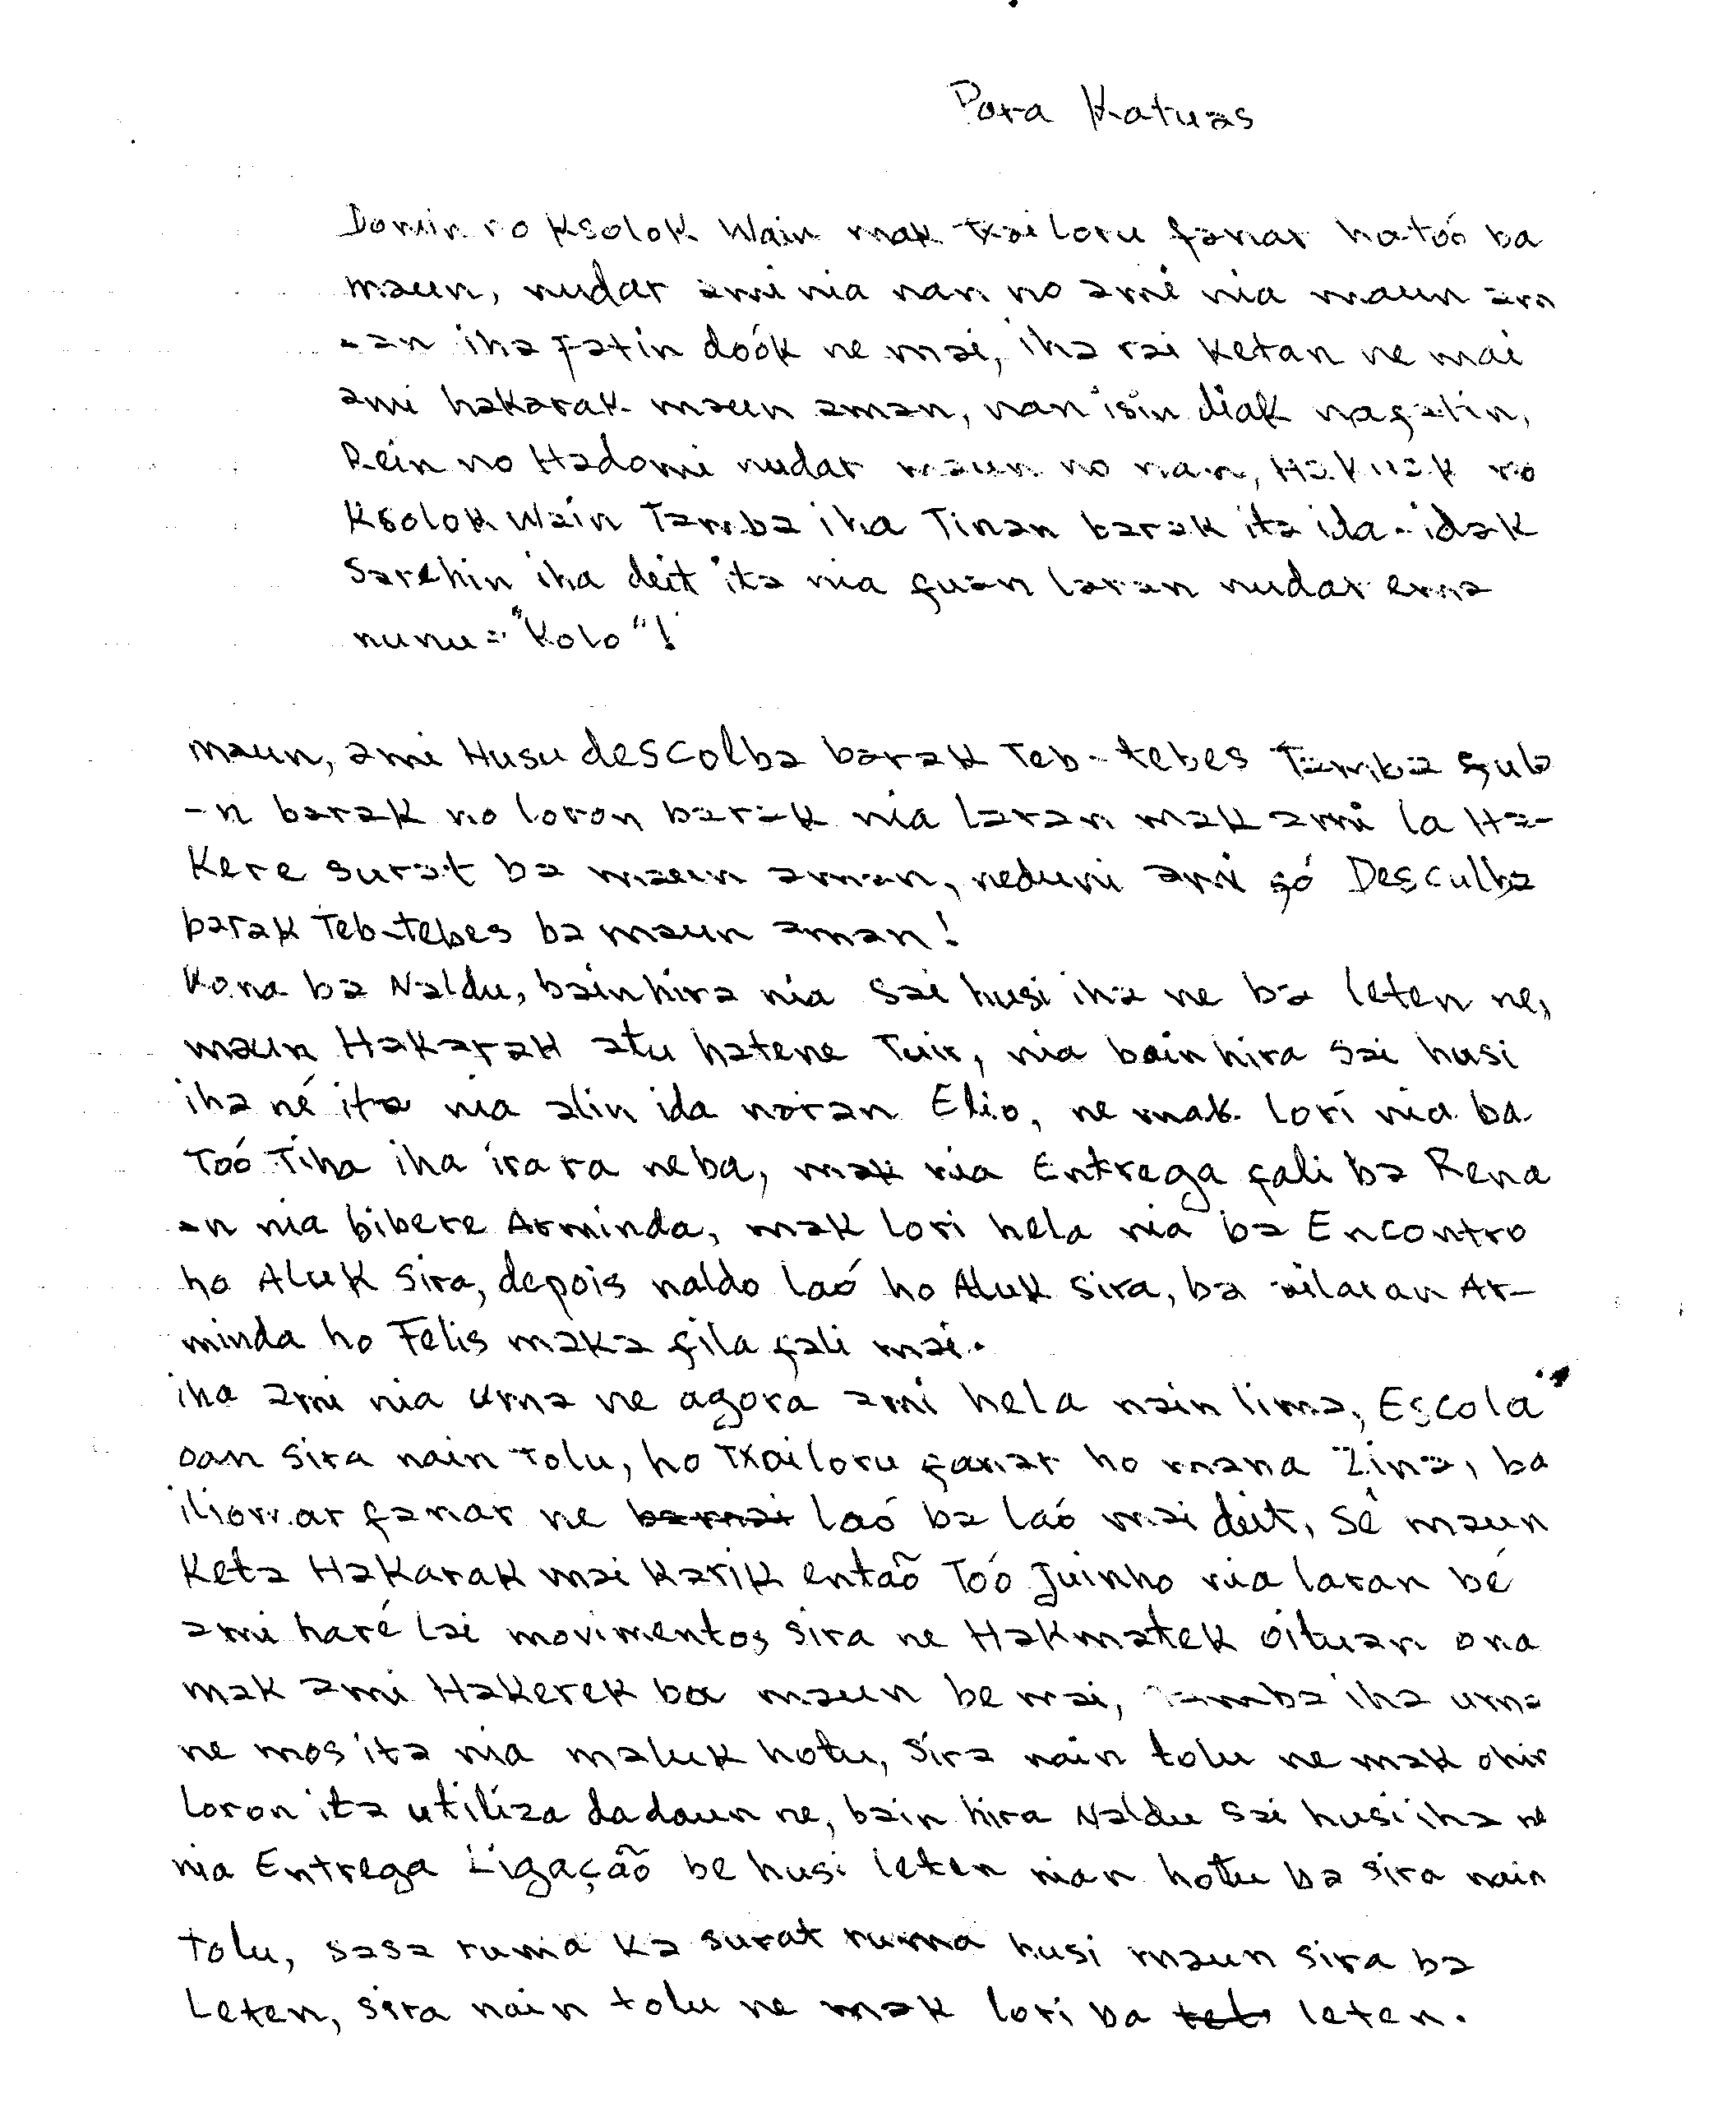 Para Katuas
Domin no Ksolok Wain mak Txailoru fanar hatóó ba
maun, nudar ami nia nan no ami nia maun am
-an iha fatin doók ne mai, iha rai Ketan ne mai
ami hakarak maun aman, nan isin diak nafatin,
Rein no Hadomi nudar maun no nan, Hakuak no
Ksolok Wain Tamba iha Tinan barak ita ida-idak
Sarehin iha deit ita nia fuan laran nudar ema
nunu= "Kolo"!
maun, ami Husu descolba barak Teb-tebes Tamba fula
-n barak no loron barak nia laran mak ami la Ha-
Kere surat ba maun aman, neduni ami só Desculba
barak Teb-tebes ba maun aman!
Kona ba Naldu, bainhira nia Sai husi iha ne ba leten ne,
maun Hakarak atu hatene Tuir, nia bainhira Sai husi
iha né ita nia alin ida naran Elio, ne mak lori nia ba
Toó Tiha iha irara neba, mak nia Entrega fali ba Rena
-n nia bibere Arminda, mak lori hela nia ba Encontro
ho Aluk Sira, depois naldo laó ho Aluk Sira, ba ailaran Ar-
minda ho Felis maka fila fali mai.
iha ami nia uma ne agora ami hela nain lima, Escola
oan Sira nain Tolu, ho Txailoru fanar ho mana Zina, ba
iliomar fanar ne laó ba laó mai deit, Sê maun
Keta Hakarak mai Karik entaõ Toó Juinho nia laran bé
ami haré lai movimentos sira ne Hakmatek oituan ona
mak ami Hakerek ba maun be mai, Tamba iha uma
ne mos ita nia maluk hotu, Sira nain tolu ne mak ohin
Loron ita utiliza dadaun ne, bain hira Naldu Sai husi iha né
nia Entrega Ligaçãõ be husi leten nian hotu ba sira nain
tolu, sasa ruma Ka surat ruma husi maun sira ba
Leten, sira nain tolu ne mak lori ba leten.